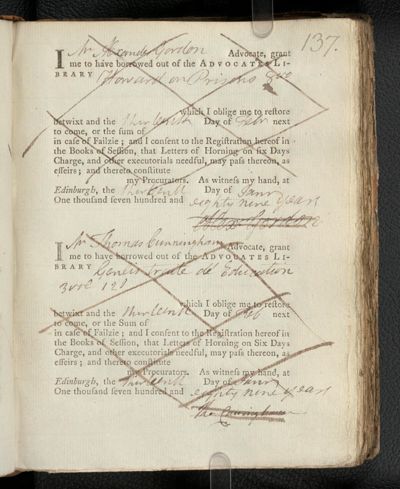 137.
I Mr Alexander Gordon Advocate, grant
me to have borrowed out of the ADVOCATES LI-
BRARY Howard on Prisons 8vo
which I oblige me to reſtore
betwixt and the thirteenth Day of Febr next
to come, or the ſum of
in caſe of Failzie; and I conſent to the Regiſtration hereof in
the Books of Seſſion, that Letters of Horning on ſix Days
Charge, and other executorials needful, may paſs thereon, as
effeirs; and thereto conſtitute
my Procurators. As witneſs my hand, at
Edinburgh, the thirteenth Day of Janry
One thouſand ſeven hundred and eighty nine years
Alex Gordon
I Mr Thomas Cunningham Advocate, grant
me to have borrowed out of the ADVOCATES LI-
BRARY Genlis de Education
3 vol 12o
which I oblige me to reſtore
betwixt and the thirteenth Day of Feb next
to come, or the Sum of
in caſe of Failzie; and I conſent to the Regiſtration hereof in
the Books of Seſſion, that Letters of Horning on Six Days
Charge, and other executorials needful, may paſs thereon, as
effeirs; and thereto conſtitute
my Procurators. As witneſs my hand, at
Edinburgh, the thirteenth Day of Janry
One thouſand ſeven hundred and eighty nine years
Tho Cuningham